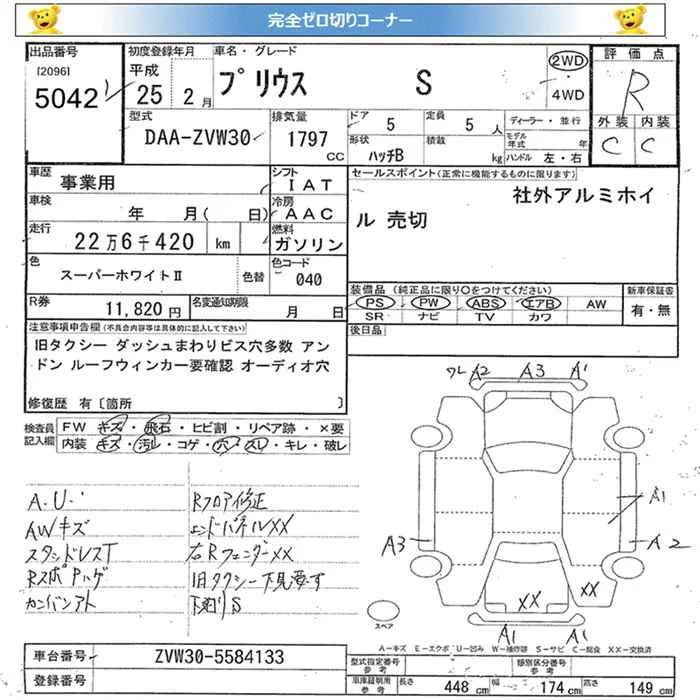 完全ゼロ切りコーナー
出品番号
[2096]
5042
初度登録年月
平成
25 2月
車名・グレード
プリウス S
2WD
・
4WD
評価点
R
外装 内装
C C
型式
DAA-ZVW30
排気量
1797
cc
ドア
5
定員
5 人
形状
ハッチB
積載
kg
ディーラー・並行
モデル年式 年
ハンドル 左・右
車歴
事業用
シフト
IAT
車検
年 月( 日)
冷房
AAC
走行
22万6千420 km
燃料
ガソリン
色
スーパーホワイトⅡ
色替
色コード
040
R券
11,820円
名変通知期限
月 日
セールスポイント(正常に機能するものに限ります)
社外アルミホイ
ル 売切
装備品 (純正品に限り○をつけてください)
PS PW ABS エアB AW
SR ナビ TV カワ
新車保証書
有・無
後日品
注意事項申告欄(不具合内容等は具体的に記入して下さい)
旧タクシー ダッシュまわりビス穴多数 アン
ドン ルーフウィンカー要確認 オーディオ穴
修復歴 有〔箇所 〕
検査員記入欄
FW キズ・飛石・ヒビ割・リペア跡・×要
内装 キズ・汚レ・コゲ・穴・スレ・キレ・破レ
A.U.
AWキズ
スタンドレスT
RスポPハゲ
カンバンアト
Rフロア修正
エンドパネルXX
右RフェンダーXX
旧タクシー下見要す
下廻りS
ワレ A2 A3 A1
A1
A3
A2
XX XX
A1 A1
スペア
A-キズ E-エクボ U-凹み W-補修跡 S-サビ C-腐食 XX-交換済
車台番号
ZVW30-5584133
登録番号
型式指定番号
参考
類別区分番号
参考
車庫証明用
参考
長さ
448 cm
幅
174 cm
高さ
149 cm